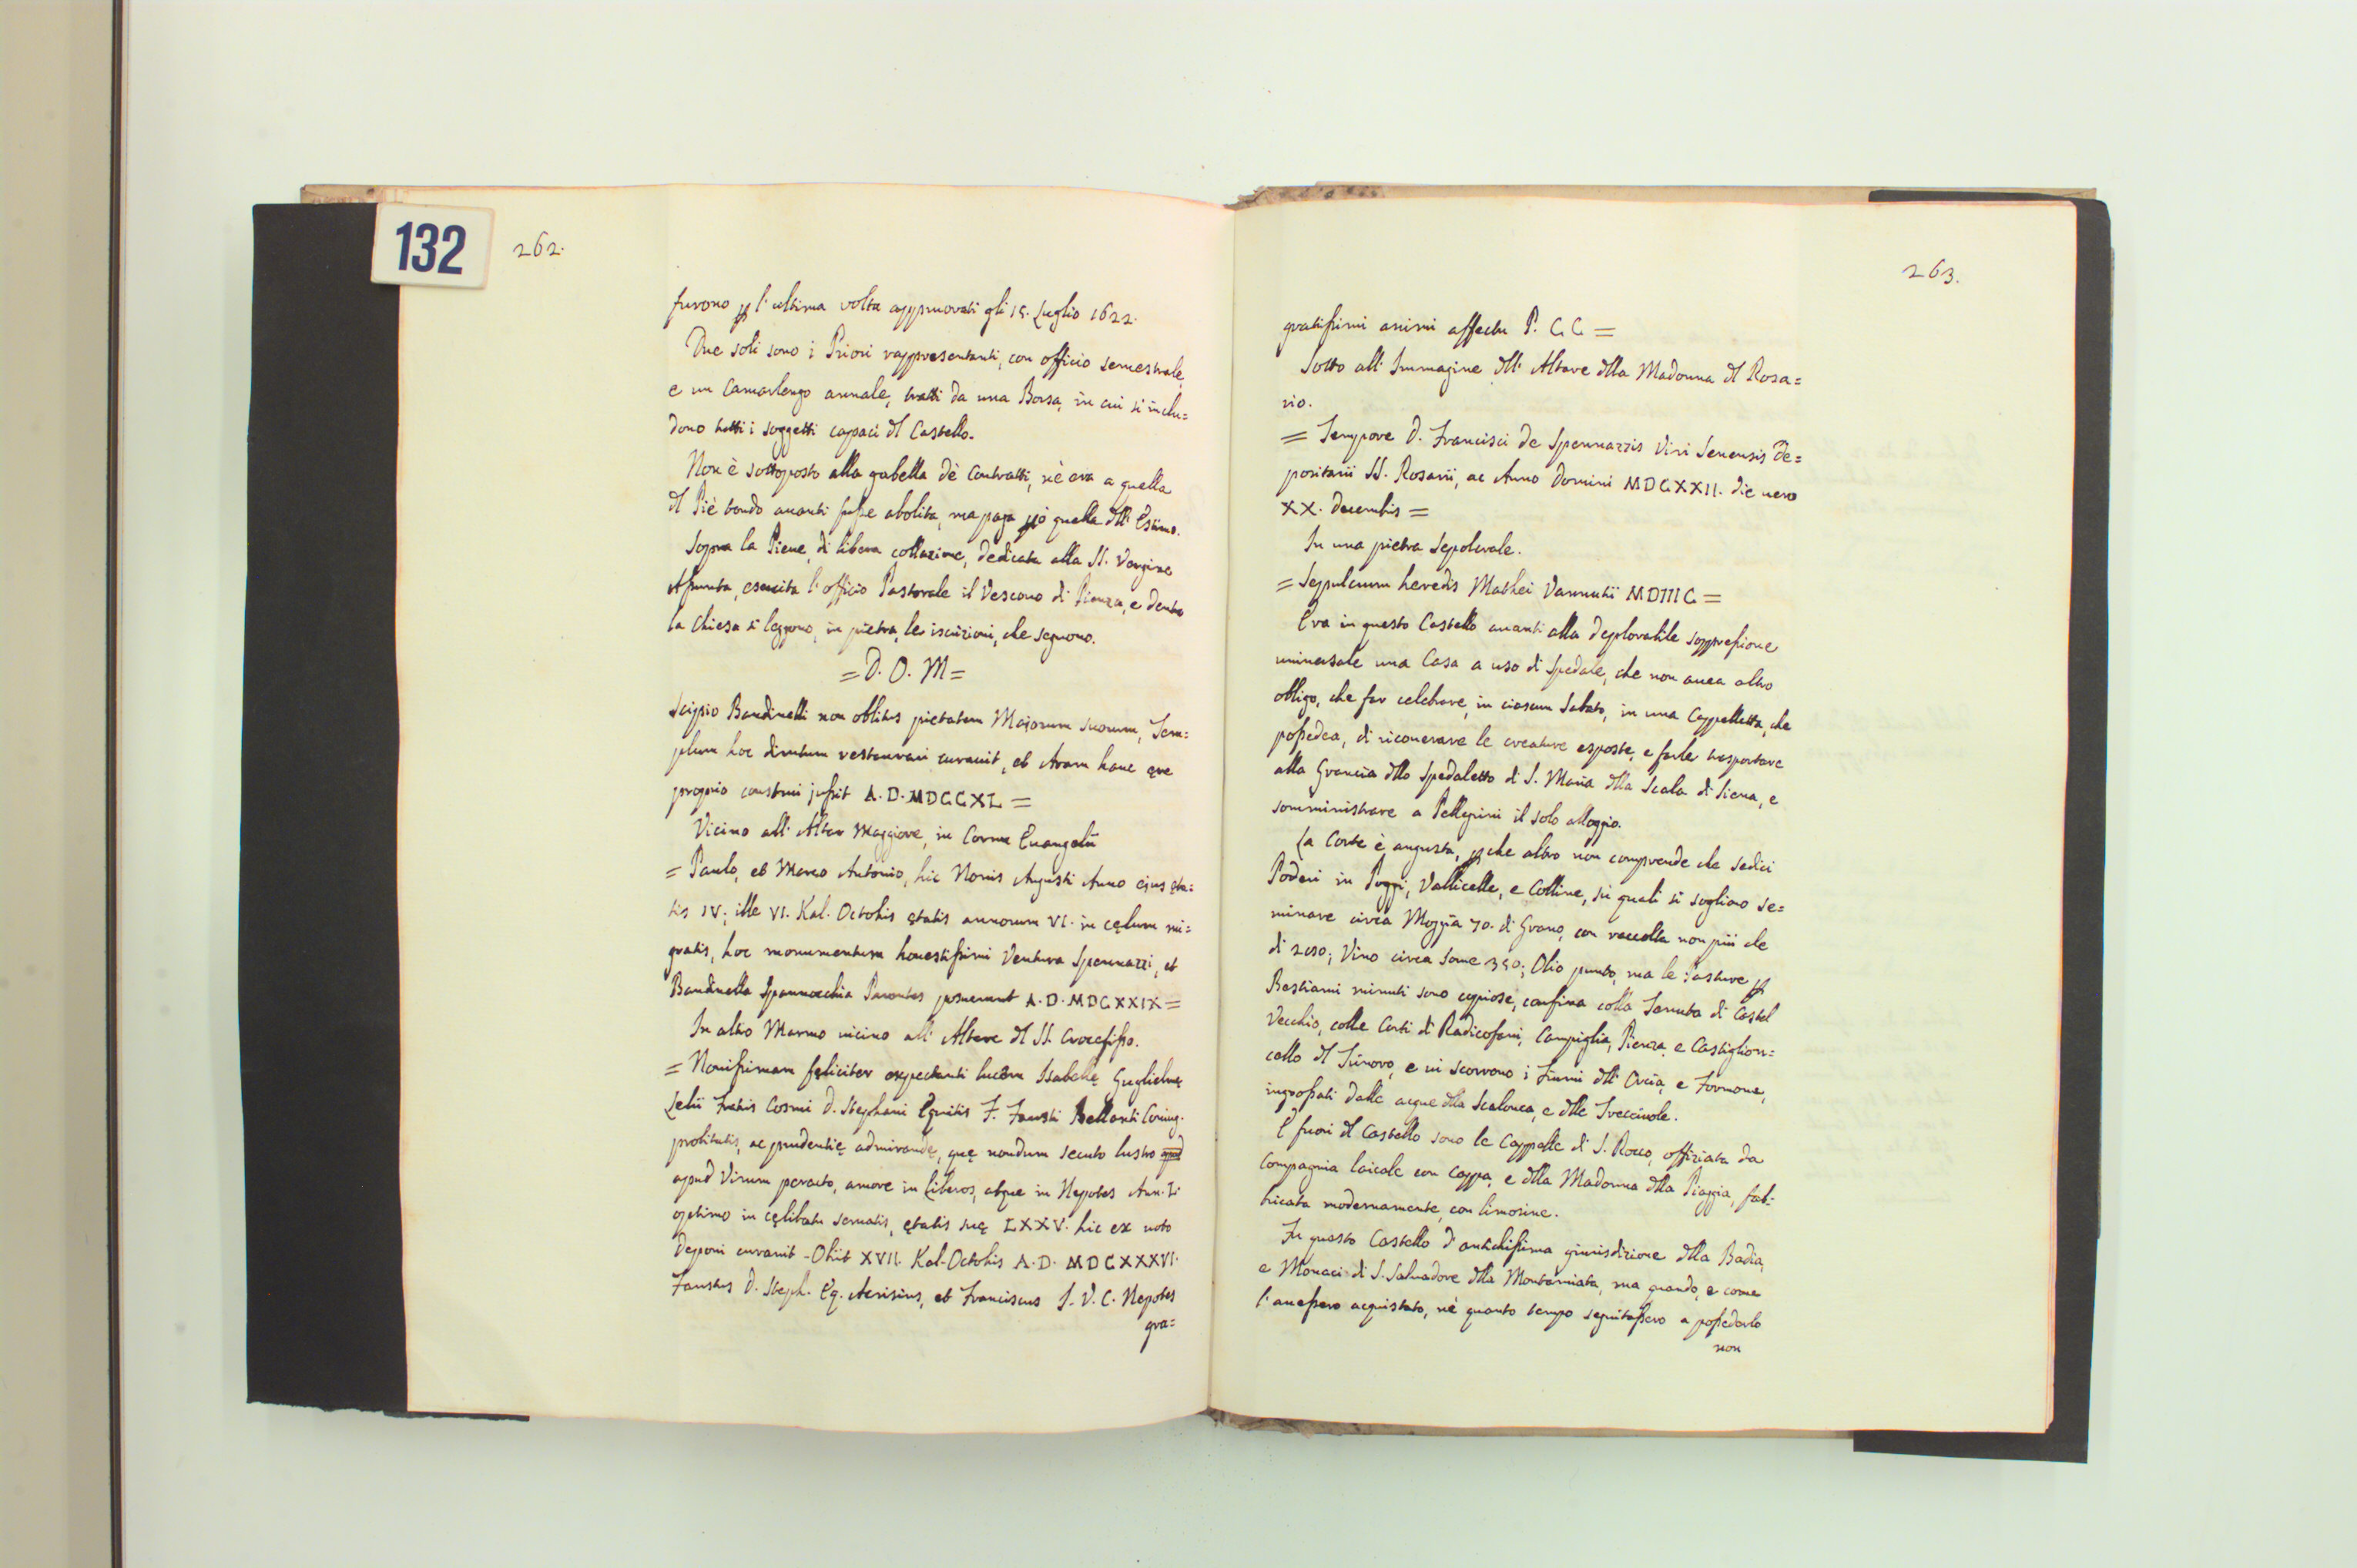 132
262.
furono p l'ultima volta appruovati gli 15. Luglio 1622.
Due soli sono i Priori rappresentanti, con officio semestrale,
e un Camarlengo annale, tratti da una Borsa, in cui si inclu=
dono tutti i soggetti capaci dl Castello.
Non è sottoposto alla gabella dè Contratti, nè era a quella
dl Piè tondo auanti fusse abolita, ma paga pò quella dll' Estimo.
Sopra la Pieue, di libera collazione, dedicata alla SS. Vergine
Assunta, esercita l'officio Pastorale il Vescouo di Pienza, e dentro
la Chiesa si leggono, in pietra, le iscrizioni, che seguono.
=D. O. M=
Scipio Bandinelli non oblitus pietatem Majorum suorum, Tem=
plum hoc dirutum restaurari curauit, et Aram hanc ęre
proprio construi jussit A. D. MDCCXL =
Vicino all' Altar Maggiore, in Cornu Euangelii
= Paulo, et Marco Antonio, hic Nonis Augusti Anno ejus ęta=
tis IV; ille VI. Kal. Octobis ętatis annorum VI. in cęlum mi=
gratis, hoc monumentum honestissimi Ventura Spennazzi, et
Bandinella Spannocchia Parentes posuerunt A. D. MDCXXIX =
In altro Marmo uicino all' Altare dl SS. Crocefisso.
= Nouissimam feliciter expectanti lucem Isabellę Guglielmę
Lelii Fratris Cosmi D. Stephani Equitis F. Fausti Bellanti Coniug.
probitatis, ac prudentię admirandę, quę nondum secuto lustro
apud Virum peracto, amore in Liberos, atque in Nepotes Ann. L.
optimo in cęlibatu seruatis, ętatis suę LXXV. hic ex uoto
deponi curauit - Obiit XVII. Kal. Octobis A. D. MDCXXXVI.
Faustus D. Steph. Eq. Acrisius, et Franciscus J. V. C. Nepotes
gra=
263.
gratissimi animi affectu P. C. C. =
Sotto all' Immagine dll' Altare dlla Madonna dl Rosa=
rio.
= Tempore D. Francisci de Spennazzis Viri Senensis De=
positarii SS. Rosarii, ac Anno Domini MDCXXII. die uero
XX. Decembis =
In una pietra Sepolcrale.
= Sepulcrum heredis Mathei Vannutii MDIIIC =
Era in questo Castello auanti alla deplorabile soppressione
uniuersale una Casa a uso di Spedale, che non auea altro
obligo, che far celebrare, in ciascun Sabato, in una Cappelletta, che
possedea, di ricouerare le creature esposte, e farle trasportare
alla Grancia dllo Spedaletto di S. Maria dlla Scala di Siena, e
somministrare a Pellegrini il solo alloggio.
La Corte è angusta, p che altro non comprende che sedici
Poderi in Poggi, Vallicelle, e Colline, in quali si sogliono se=
minare circa Moggia 70. di Grano, con raccolta non più che
di 250; Vino circa some 350; Olio punto, ma le Pasture p
Bestiami minuti sono copiose, confina colla Tenuta di Castel
Vecchio, colle Corti di Radicofani, Campiglia, Pienza, e Castiglion=
cello dl Trinoro, e ui scorrono i Fiumi dll' Orcia, e Formone,
ingrossati dalle acque dlla Scalonca, e dlle Treccinole.
E fuori dl Castello sono le Cappelle di S. Rocco, offiziata da
Compagnia laicale con Cappa, e dlla Madonna dlla Piaggia, fab=
bricata modernamente, con limosine.
Fu questo Castello d'antichissima giurisdizione dlla Badia,
e Monaci di S. Saluadore dlla Montamiata, ma quando, e come
l'auessero acquistato, nè quanto tempo seguitassero a possederlo
non